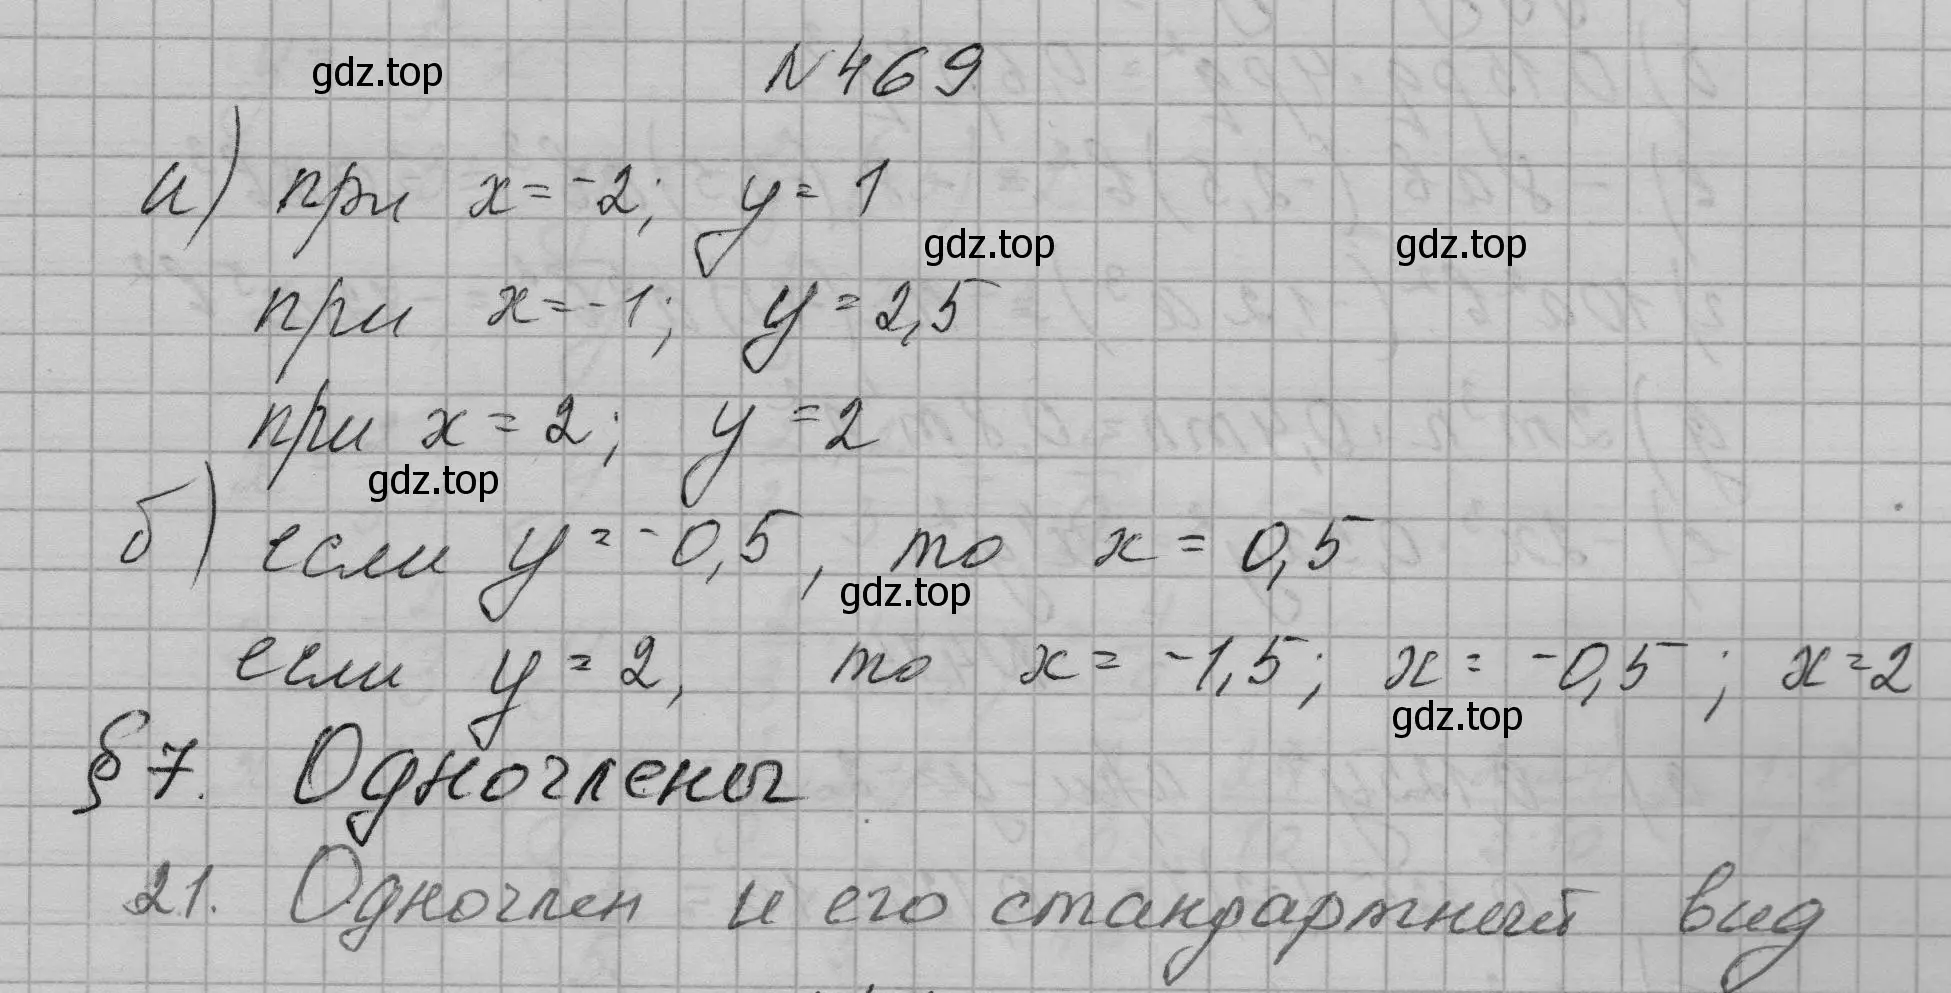 N 469
gdz.top
а) при x = -2; y = 1
gdz.top
gdz.top
при x = -1; y = 2,5
при x = 2; y = 2
gdz.top
б) если y = -0,5, то x = 0,5
gdz.top
если y = 2, то x = -1,5; x = -0,5; x = 2
gdz.top
§ 7. Одночлены
21. Одночлен и его стандартный вид